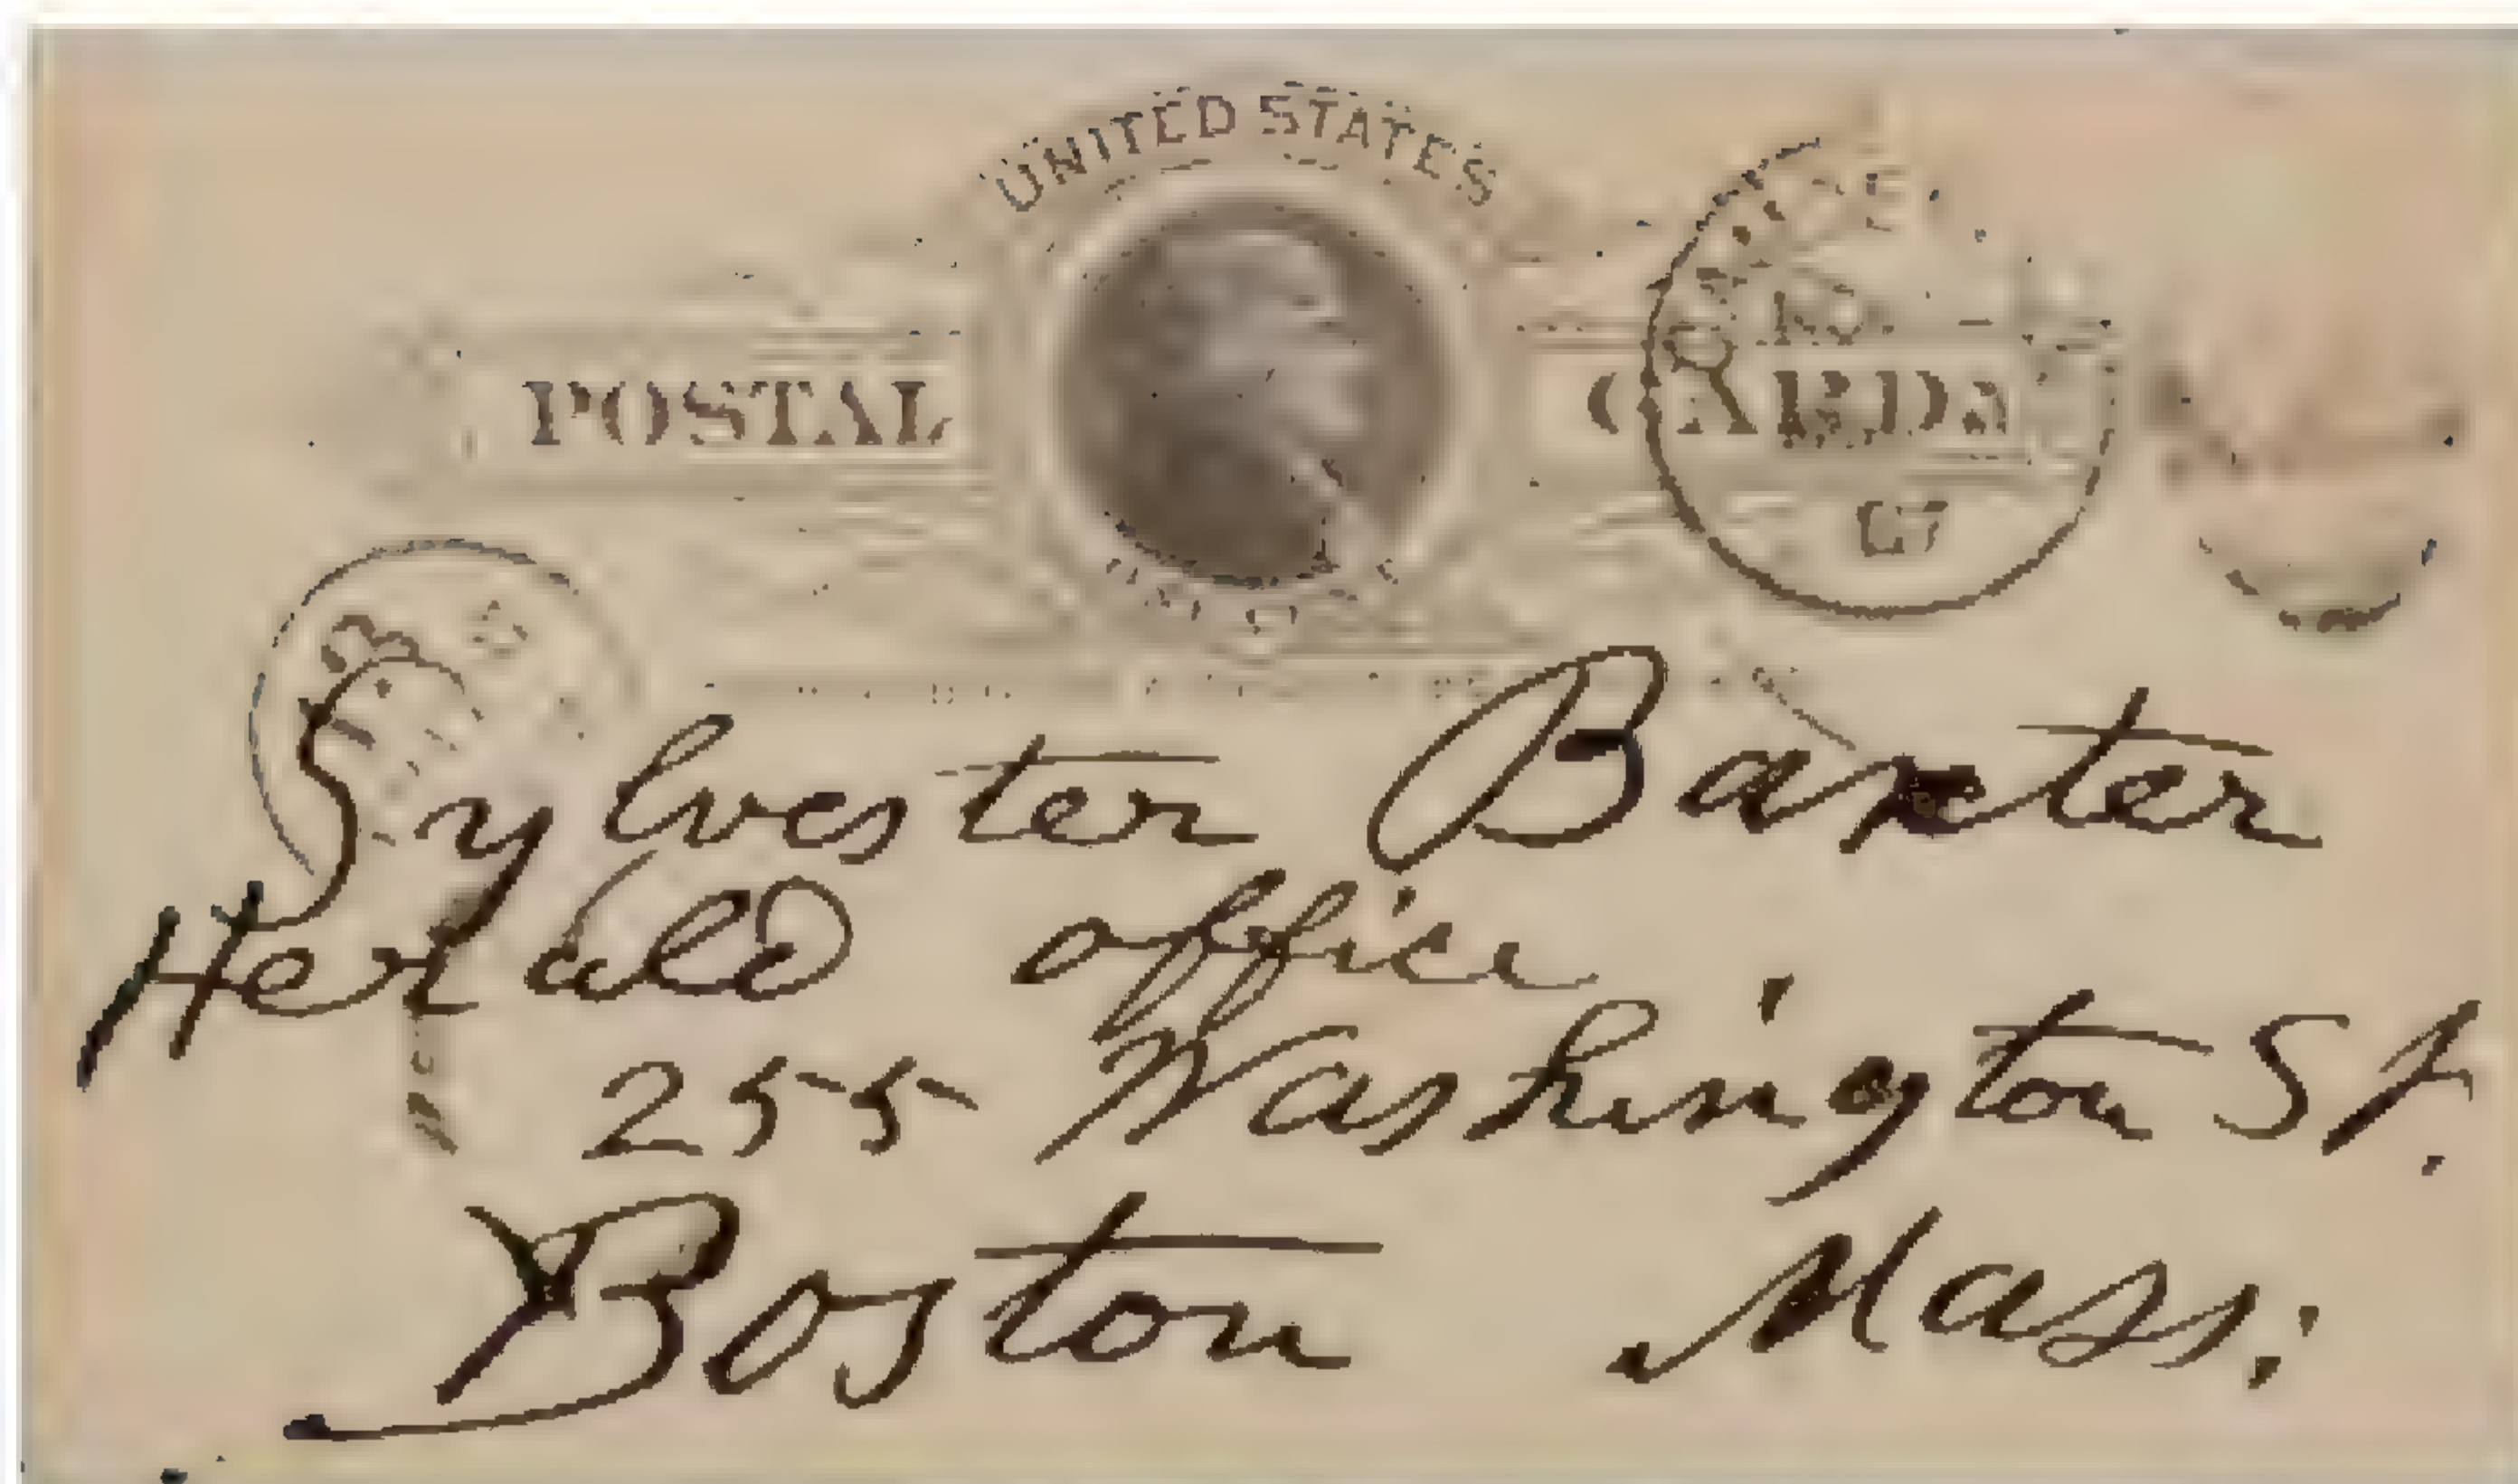 UNITED STATES
POSTAL CARD
Sylvester Baxter
Herald office
255 Washington St.
Boston Mass: